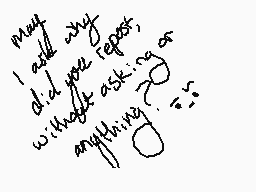 may
I ask why
did you repost,
without asking or
anything? :-